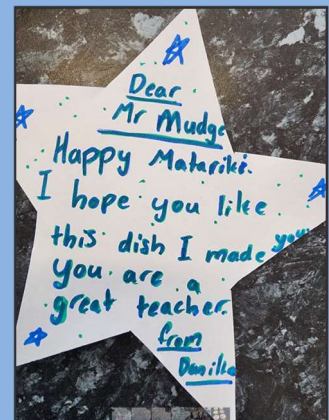 Dear
Mr Mudge
Happy Matariki.
I hope you like
this dish I made you
You are a
great teacher.
from
Danilla